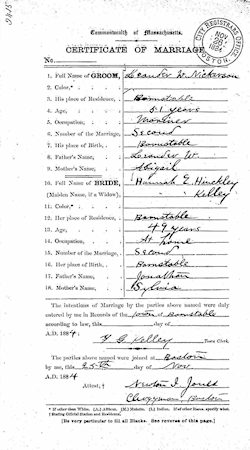 2815
Commonwealth of Massachusetts.
CITY REGISTRARS
NOV
1884
BOSTON
CERTIFICATE OF MARRIAGE
No.
1. Full Name of GROOM, Leander W. Nickerson
2. Color,*
3. His place of Residence, Barnstable
4. Age, 51 years
5. Occupation, Mariner
6. Number of the Marriage, Second
7. His place of Birth, Barnstable
8. Father's Name, Leander W.
9. Mother's Name, Abigail
10. Full Name of BRIDE, Hannah E. Hinckley
(Maiden Name, if a Widow), Kelley
11. Color,*
12. Her place of Residence, Barnstable
13. Age, 49 years
14. Occupation, At home
15. Number of the Marriage, Second
16. Her place of Birth, Barnstable
17. Father's Name, Jonathan
18. Mother's Name, Sylvia
The intentions of Marriage by the parties above named were duly
entered by me in Records of the town of Barnstable
according to law, this day of
A.D. 1884: F. G. Kelley Town Clerk.
The parties above named were joined at Boston
by me, this 25th day of Nov
A.D. 1884
Attest,† Newton I. Jones
Clergyman, Boston
* If other than White. (A.) African. (M.) Mulatto. (I.) Indian. If of other Races, specify what.
† Stating Official Station and Residence.
[Be very particular to fill all Blanks. See reverse of this page.]